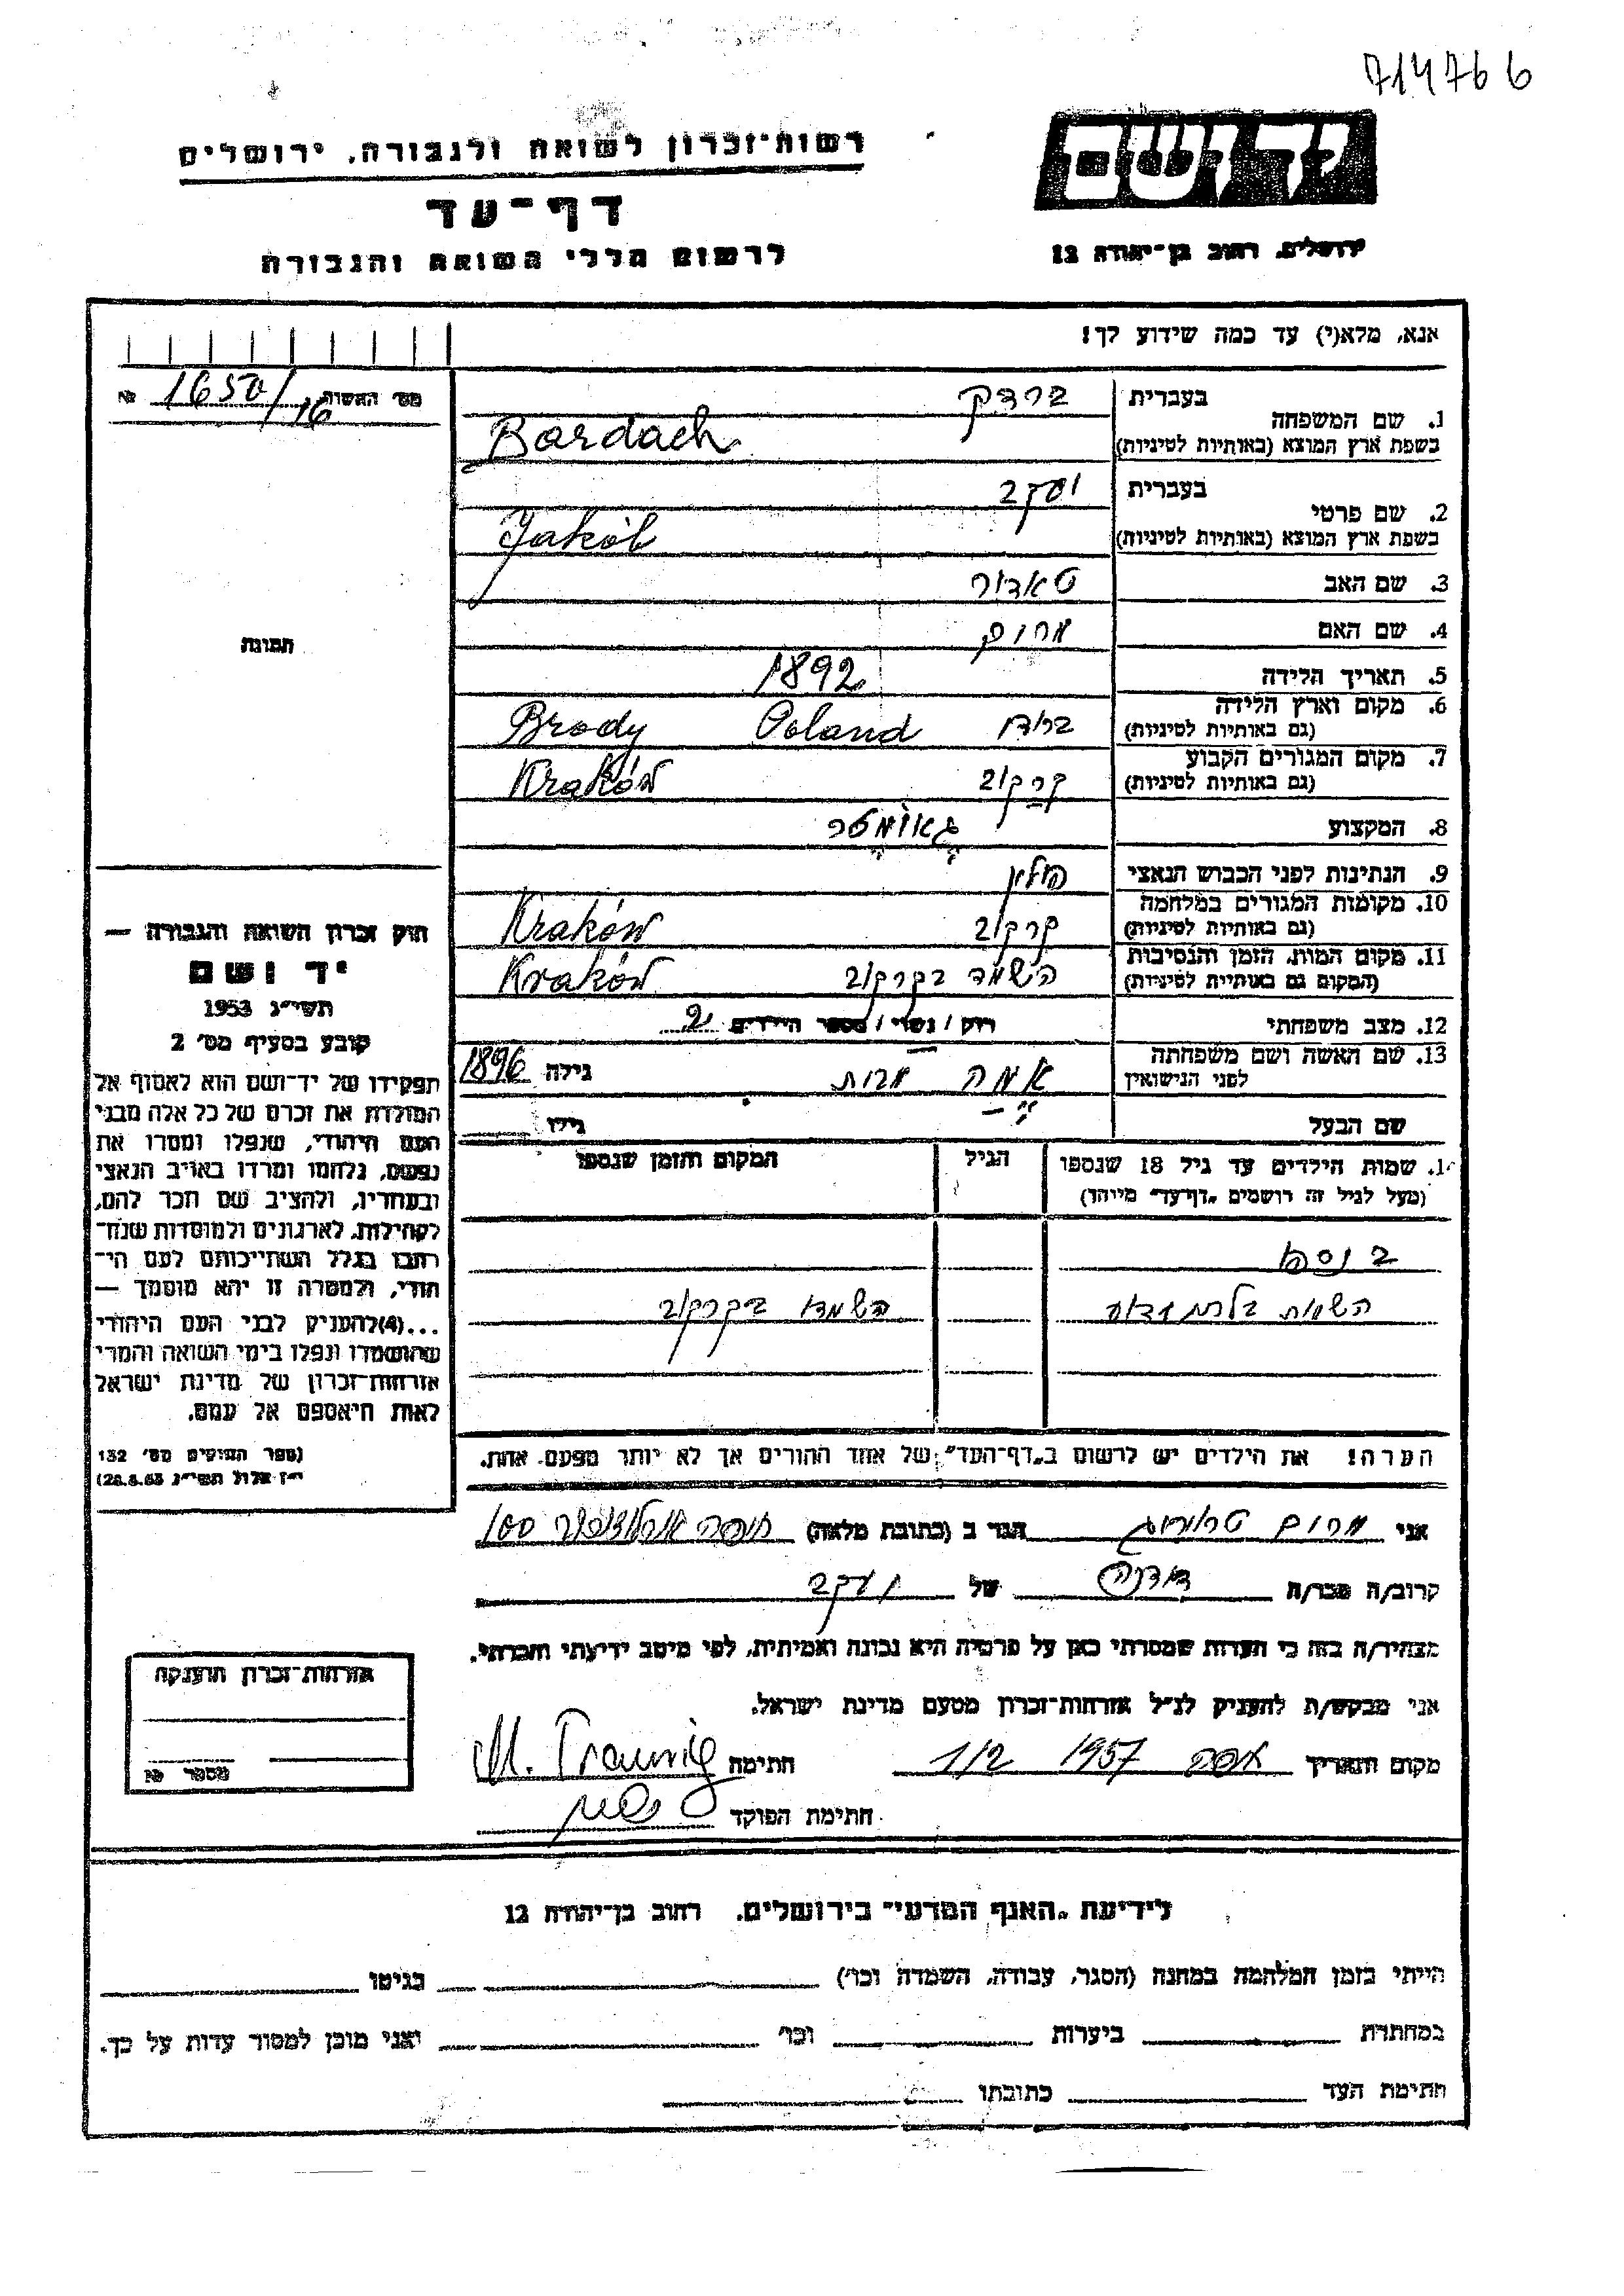 714766
יד ושם
רשות־זכרון לשואה ולגבורה, ירושלים
דף־עד
ירושלים, רחוב בן־יהודה 12
לרשום חללי השואה והגבורה
אנא, מלא(י) עד כמה שידוע לך!
מס׳ האשות 1650/16 №
1. שם המשפחה
בעברית ברדק
בשפת ארץ המוצא (באותיות לטיניות) Bardach
2. שם פרטי
בעברית יעקב
בשפת ארץ המוצא (באותיות לטיניות) Jakób
3. שם האב
4. שם האם מרים
5. תאריך הלידה 1892
6. מקום וארץ הלידה
(גם באותיות לטיניות) ברודי Poland Brody
7. מקום המגורים הקבוע
(גם באותיות לטיניות) קרקוב Kraków
8. המקצוע
9. הנתינות לפני הכבוש הנאצי פולין
10. מקומות המגורים במלחמה
(גם באותיות לטיניות) קרקוב Kraków
11. מקום המות, הזמן והנסיבות
(המקום גם באותיות לטיניות) השמד בקרקוב Kraków
12. מצב משפחתי רוק / נשוי / מספר הילדים 2
13. שם האשה ושם משפחתה
לפני הנישואין אמה גילה 1896
שם הבעל גילו
שמות הילדים עד גיל 18 שנספו הגיל המקום והזמן שנספו
(מעל לגיל זה רושמים „דף־עד״ מיוחד)
2 נספו
השמות בלתי ידוע השמדו בקרקוב
הערה! את הילדים יש לרשום ב„דף־העד״ של אחד ההורים אך לא יותר מפעם אחת.
תמונה
חוק זכרון השואה והגבורה —
יד ושם
תשי״ג 1953
קובע בסעיף מס׳ 2
תפקידו של יד־ושם הוא לאסוף אל
המולדת את זכרם של כל אלה מבני
העם היהודי, שנפלו ומסרו את
נפשם, נלחמו ומרדו באויב הנאצי
ובעוזריו, ולהציב שם וזכר להם,
לקהילות, לארגונים ולמוסדות שנח־
רבו בגלל השתייכותם לעם הי־
הודי, ולמטרה זו יהא מוסמך —
...(4)להעניק לבני העם היהודי
שהושמדו ונפלו בימי השואה והמרי
אזרחות־זכרון של מדינת ישראל
לאות היאספם אל עמם.
(ספר החוקים מס׳ 132
י״ז אלול תשי״ג 28.8.53)
אני מרים טראוניג הגר ב (כתובת מלאה) חיפה 100
קרוב/ה מכר/ה דודנה של יעקב
מצהיר/ה בזה כי העדות שמסרתי כאן על פרטיה היא נכונה ואמיתית, לפי מיטב ידיעתי והכרתי.
אני מבקש/ת להעניק לנ״ל אזרחות־זכרון מטעם מדינת ישראל.
מקום ותאריך חיפה 1957 1/2 חתימה M. Traunig
חתימת הפוקד
אזרחות־זכרון הוענקה
מספר №
לידיעת „האגף המדעי״ בירושלים, רחוב בן־יהודה 12
הייתי בזמן המלחמה במחנה (הסגר, עבודה, השמדה וכו׳) בגיטו
במחתרת ביערות וכו׳ ואני מוכן למסור עדות על כך.
חתימת העד כתובתו